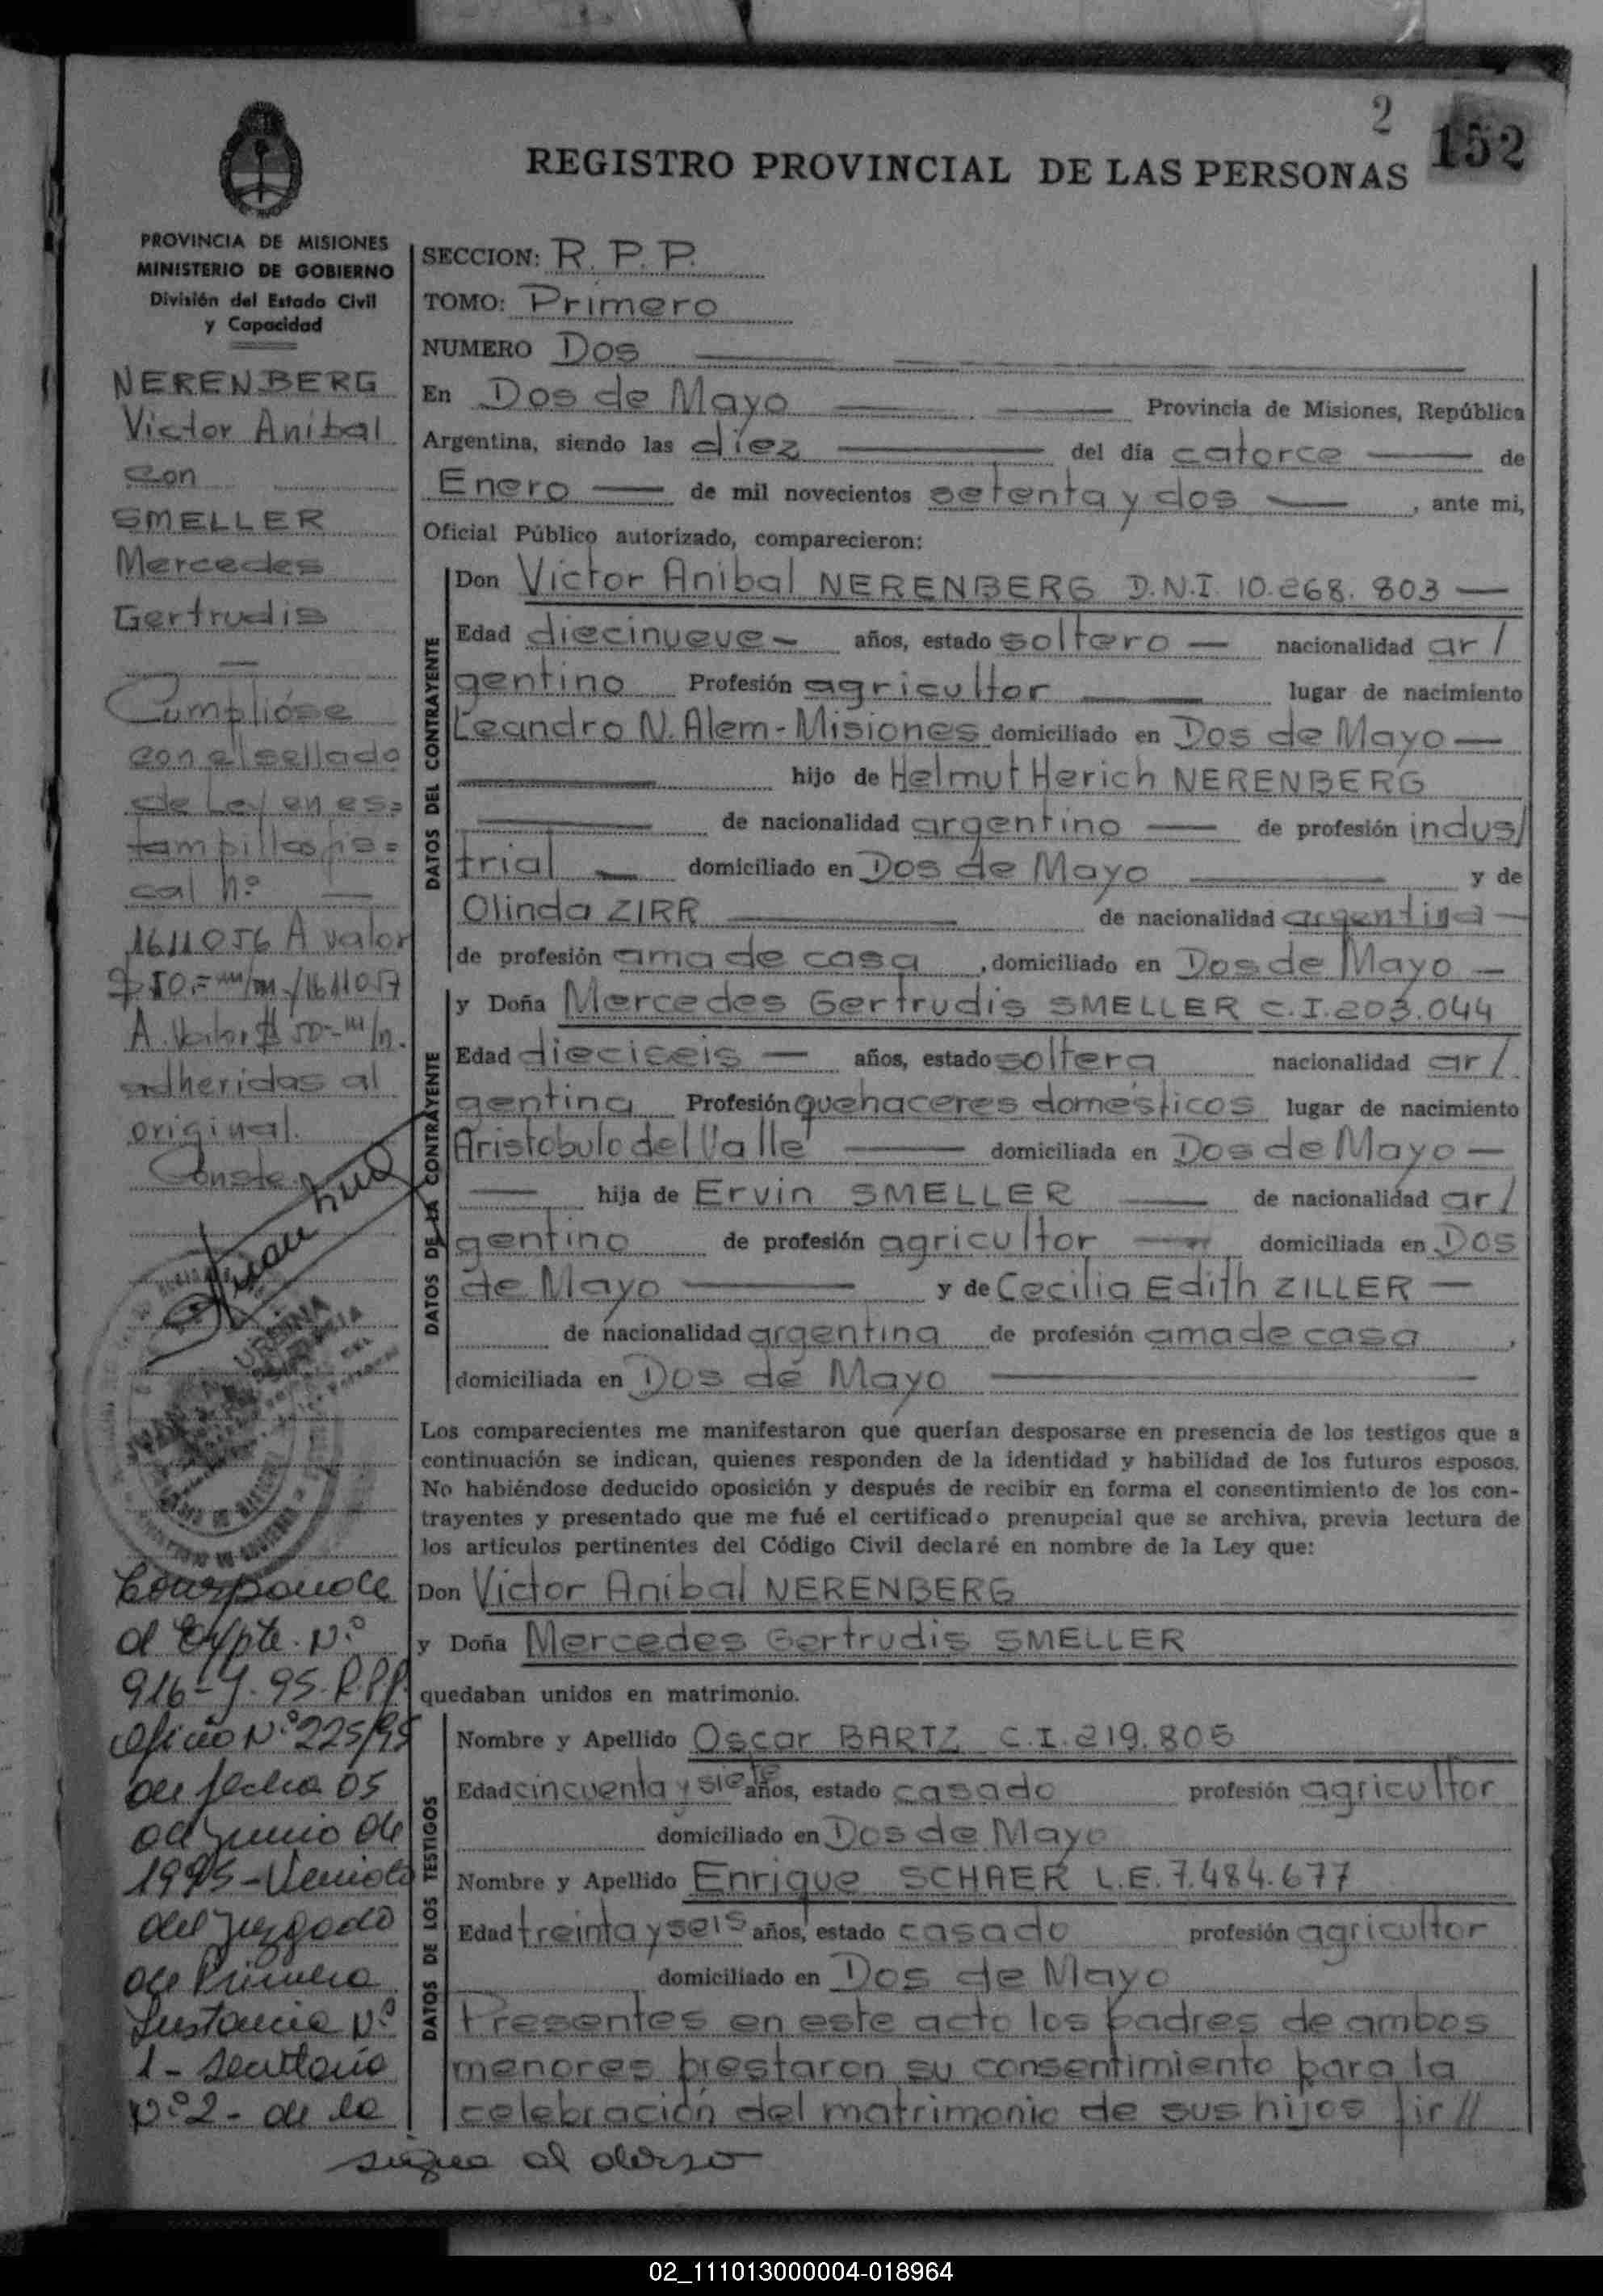 2
152
REGISTRO PROVINCIAL DE LAS PERSONAS
PROVINCIA DE MISIONES
MINISTERIO DE GOBIERNO
División del Estado Civil
y Capacidad
NERENBERG
Victor Anibal
con
SMELLER
Mercedes
Gertrudis
Cumplióse
con el sellado
de Ley en es=
tampillas fis=
cal nº
1611056 A valor
$ 50.= m/m/1611057
A. Valor $ 50= m/n.
adheridas al
original.
Conste.
Corresponde
al Expte. Nº
916-Y-95-R.P.P.
Oficio Nº 225/95
de fecha 05
de Junio de
1995 - Venido
del Juzgado
de Primera
Instancia Nº
1 - Secretaria
Nº 2 - de la
SECCION: R. P. P.
TOMO: Primero
NUMERO Dos
En Dos de Mayo Provincia de Misiones, República
Argentina, siendo las diez del día catorce de
Enero de mil novecientos setenta y dos , ante mi,
Oficial Público autorizado, comparecieron:
DATOS DEL CONTRAYENTE
Don Victor Anibal NERENBERG D.N.I. 10.268.803
Edad diecinueve años, estado soltero nacionalidad ar/
gentino Profesión agricultor lugar de nacimiento
Leandro N. Alem - Misiones domiciliado en Dos de Mayo
hijo de Helmut Herich NERENBERG
de nacionalidad argentino de profesión indus/
trial domiciliado en Dos de Mayo y de
Olinda ZIRR de nacionalidad argentina
de profesión ama de casa , domiciliado en Dos de Mayo
DATOS DE LA CONTRAYENTE
y Doña Mercedes Gertrudis SMELLER C.I. 203.044
Edad dieciseis años, estado soltera nacionalidad ar/
gentina Profesión quehaceres domésticos lugar de nacimiento
Aristobulo del Valle domiciliada en Dos de Mayo
hija de Ervin SMELLER de nacionalidad ar/
gentino de profesión agricultor domiciliada en Dos
de Mayo y de Cecilia Edith ZILLER
de nacionalidad argentina de profesión ama de casa ,
domiciliada en Dos de Mayo
Los comparecientes me manifestaron que querían desposarse en presencia de los testigos que a
continuación se indican, quienes responden de la identidad y habilidad de los futuros esposos.
No habiéndose deducido oposición y después de recibir en forma el consentimiento de los con-
trayentes y presentado que me fué el certificado prenupcial que se archiva, previa lectura de
los artículos pertinentes del Código Civil declaré en nombre de la Ley que:
Don Victor Anibal NERENBERG
y Doña Mercedes Gertrudis SMELLER
quedaban unidos en matrimonio.
DATOS DE LOS TESTIGOS
Nombre y Apellido Oscar BARTZ C.I. 219.805
Edad cincuenta y siete años, estado casado profesión agricultor
domiciliado en Dos de Mayo
Nombre y Apellido Enrique SCHAER L.E. 7.484.677
Edad treinta y seis años, estado casado profesión agricultor
domiciliado en Dos de Mayo
Presentes en este acto los padres de ambos
menores prestaron su consentimiento para la
celebración del matrimonio de sus hijos fir//
sigue al dorso
02_111013000004-018964